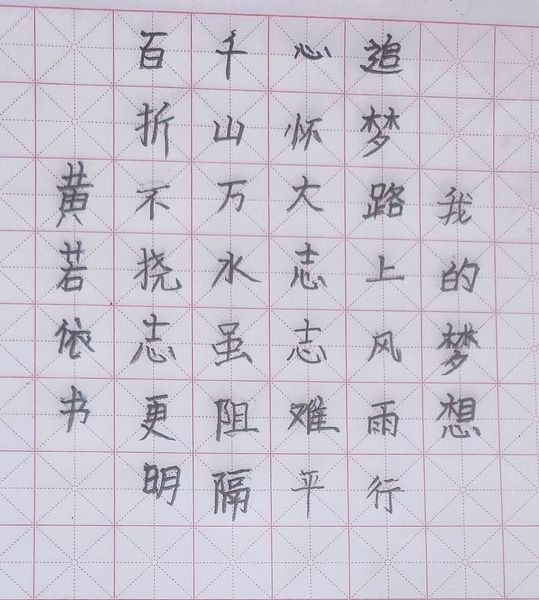 我的梦想
追梦路上风雨行
心怀大志志难平
千山万水虽阻隔
百折不挠志更明
黄若依书